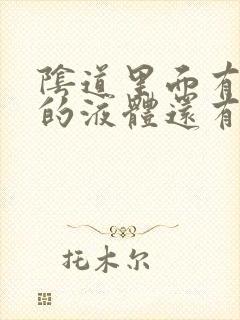 陰道里面有
的液體還有
托木尔